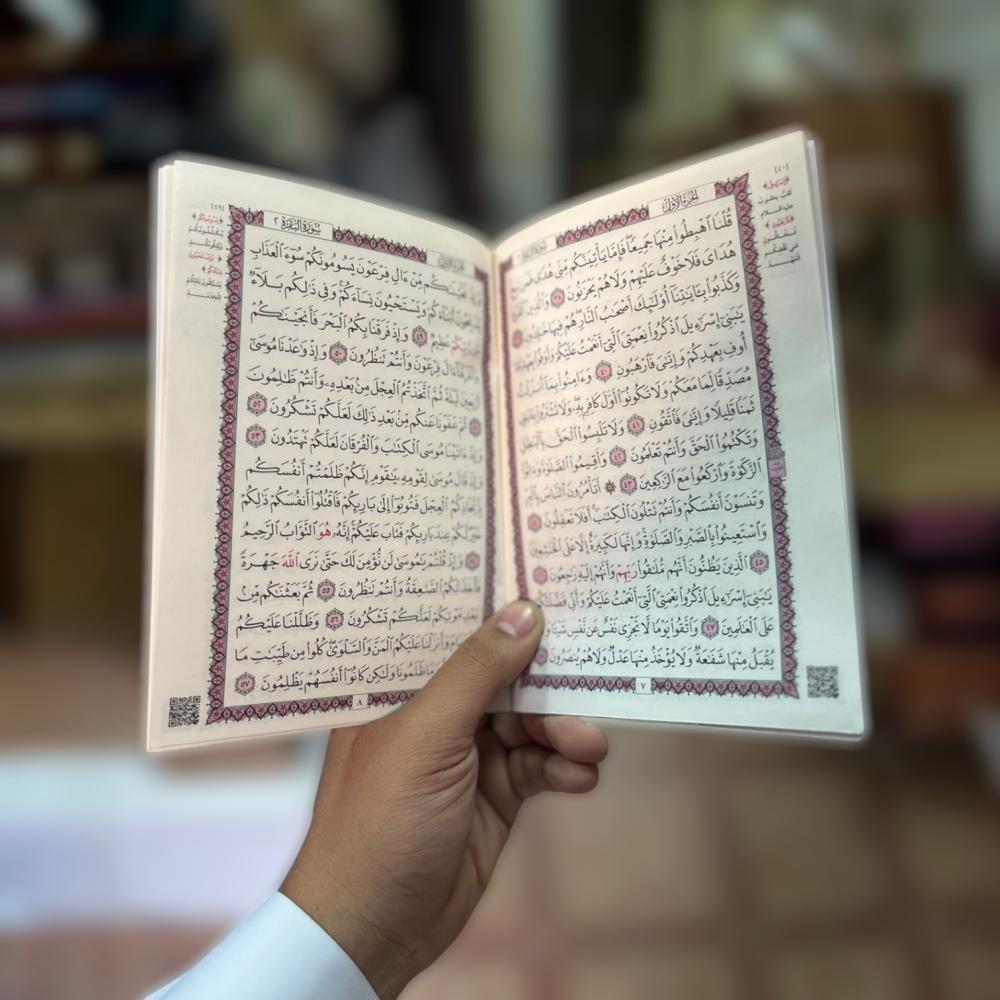 الجزء الأول
قُلْنَا ٱهْبِطُوا۟ مِنْهَا جَمِيعًا فَإِمَّا يَأْتِيَنَّكُم مِّنِّى هُدًى فَمَن تَبِعَ
هُدَاىَ فَلَا خَوْفٌ عَلَيْهِمْ وَلَا هُمْ يَحْزَنُونَ ٣٨ وَٱلَّذِينَ كَفَرُوا۟
وَكَذَّبُوا۟ بِـَٔايَـٰتِنَآ أُو۟لَـٰٓئِكَ أَصْحَـٰبُ ٱلنَّارِ هُمْ فِيهَا خَـٰلِدُونَ ٣٩
يَـٰبَنِىٓ إِسْرَٰٓءِيلَ ٱذْكُرُوا۟ نِعْمَتِىَ ٱلَّتِىٓ أَنْعَمْتُ عَلَيْكُمْ وَأَوْفُوا۟ بِعَهْدِىٓ
أُوفِ بِعَهْدِكُمْ وَإِيَّـٰىَ فَٱرْهَبُونِ ٤٠ وَءَامِنُوا۟ بِمَآ أَنزَلْتُ
مُصَدِّقًا لِّمَا مَعَكُمْ وَلَا تَكُونُوٓا۟ أَوَّلَ كَافِرٍۭ بِهِۦ وَلَا تَشْتَرُوا۟ بِـَٔايَـٰتِى
ثَمَنًا قَلِيلًا وَإِيَّـٰىَ فَٱتَّقُونِ ٤١ وَلَا تَلْبِسُوا۟ ٱلْحَقَّ بِٱلْبَـٰطِلِ
وَتَكْتُمُوا۟ ٱلْحَقَّ وَأَنتُمْ تَعْلَمُونَ ٤٢ وَأَقِيمُوا۟ ٱلصَّلَوٰةَ وَءَاتُوا۟
ٱلزَّكَوٰةَ وَٱرْكَعُوا۟ مَعَ ٱلرَّٰكِعِينَ ٤٣ ۞ أَتَأْمُرُونَ ٱلنَّاسَ بِٱلْبِرِّ
وَتَنسَوْنَ أَنفُسَكُمْ وَأَنتُمْ تَتْلُونَ ٱلْكِتَـٰبَ أَفَلَا تَعْقِلُونَ ٤٤
وَٱسْتَعِينُوا۟ بِٱلصَّبْرِ وَٱلصَّلَوٰةِ وَإِنَّهَا لَكَبِيرَةٌ إِلَّا عَلَى ٱلْخَـٰشِعِينَ
٤٥ ٱلَّذِينَ يَظُنُّونَ أَنَّهُم مُّلَـٰقُوا۟ رَبِّهِمْ وَأَنَّهُمْ إِلَيْهِ رَٰجِعُونَ ٤٦
يَـٰبَنِىٓ إِسْرَٰٓءِيلَ ٱذْكُرُوا۟ نِعْمَتِىَ ٱلَّتِىٓ أَنْعَمْتُ عَلَيْكُمْ وَأَنِّى فَضَّلْتُكُمْ
عَلَى ٱلْعَـٰلَمِينَ ٤٧ وَٱتَّقُوا۟ يَوْمًا لَّا تَجْزِى نَفْسٌ عَن نَّفْسٍ شَيْـًٔا وَلَا
يُقْبَلُ مِنْهَا شَفَـٰعَةٌ وَلَا يُؤْخَذُ مِنْهَا عَدْلٌ وَلَا هُمْ يُنصَرُونَ ٤٨
٧
سُورَةُ البَقَرَةِ ٢
وَإِذْ نَجَّيْنَـٰكُم مِّنْ ءَالِ فِرْعَوْنَ يَسُومُونَكُمْ سُوٓءَ ٱلْعَذَابِ
يُذَبِّحُونَ أَبْنَآءَكُمْ وَيَسْتَحْيُونَ نِسَآءَكُمْ وَفِى ذَٰلِكُم بَلَآءٌ
مِّن رَّبِّكُمْ عَظِيمٌ ٤٩ وَإِذْ فَرَقْنَا بِكُمُ ٱلْبَحْرَ فَأَنجَيْنَـٰكُمْ
وَأَغْرَقْنَآ ءَالَ فِرْعَوْنَ وَأَنتُمْ تَنظُرُونَ ٥٠ وَإِذْ وَٰعَدْنَا مُوسَىٰٓ
أَرْبَعِينَ لَيْلَةً ثُمَّ ٱتَّخَذْتُمُ ٱلْعِجْلَ مِنۢ بَعْدِهِۦ وَأَنتُمْ ظَـٰلِمُونَ
٥١ ثُمَّ عَفَوْنَا عَنكُم مِّنۢ بَعْدِ ذَٰلِكَ لَعَلَّكُمْ تَشْكُرُونَ ٥٢
وَإِذْ ءَاتَيْنَا مُوسَى ٱلْكِتَـٰبَ وَٱلْفُرْقَانَ لَعَلَّكُمْ تَهْتَدُونَ ٥٣
وَإِذْ قَالَ مُوسَىٰ لِقَوْمِهِۦ يَـٰقَوْمِ إِنَّكُمْ ظَلَمْتُمْ أَنفُسَكُم
بِٱتِّخَاذِكُمُ ٱلْعِجْلَ فَتُوبُوٓا۟ إِلَىٰ بَارِئِكُمْ فَٱقْتُلُوٓا۟ أَنفُسَكُمْ ذَٰلِكُمْ
خَيْرٌ لَّكُمْ عِندَ بَارِئِكُمْ فَتَابَ عَلَيْكُمْ إِنَّهُۥ هُوَ ٱلتَّوَّابُ ٱلرَّحِيمُ
٥٤ وَإِذْ قُلْتُمْ يَـٰمُوسَىٰ لَن نُّؤْمِنَ لَكَ حَتَّىٰ نَرَى ٱللَّهَ جَهْرَةً
فَأَخَذَتْكُمُ ٱلصَّـٰعِقَةُ وَأَنتُمْ تَنظُرُونَ ٥٥ ثُمَّ بَعَثْنَـٰكُم مِّنۢ
بَعْدِ مَوْتِكُمْ لَعَلَّكُمْ تَشْكُرُونَ ٥٦ وَظَلَّلْنَا عَلَيْكُمُ
ٱلْغَمَامَ وَأَنزَلْنَا عَلَيْكُمُ ٱلْمَنَّ وَٱلسَّلْوَىٰ كُلُوا۟ مِن طَيِّبَـٰتِ مَا
وَمَا ظَلَمُونَا وَلَـٰكِن كَانُوٓا۟ أَنفُسَهُمْ يَظْلِمُونَ ٥٧
٨